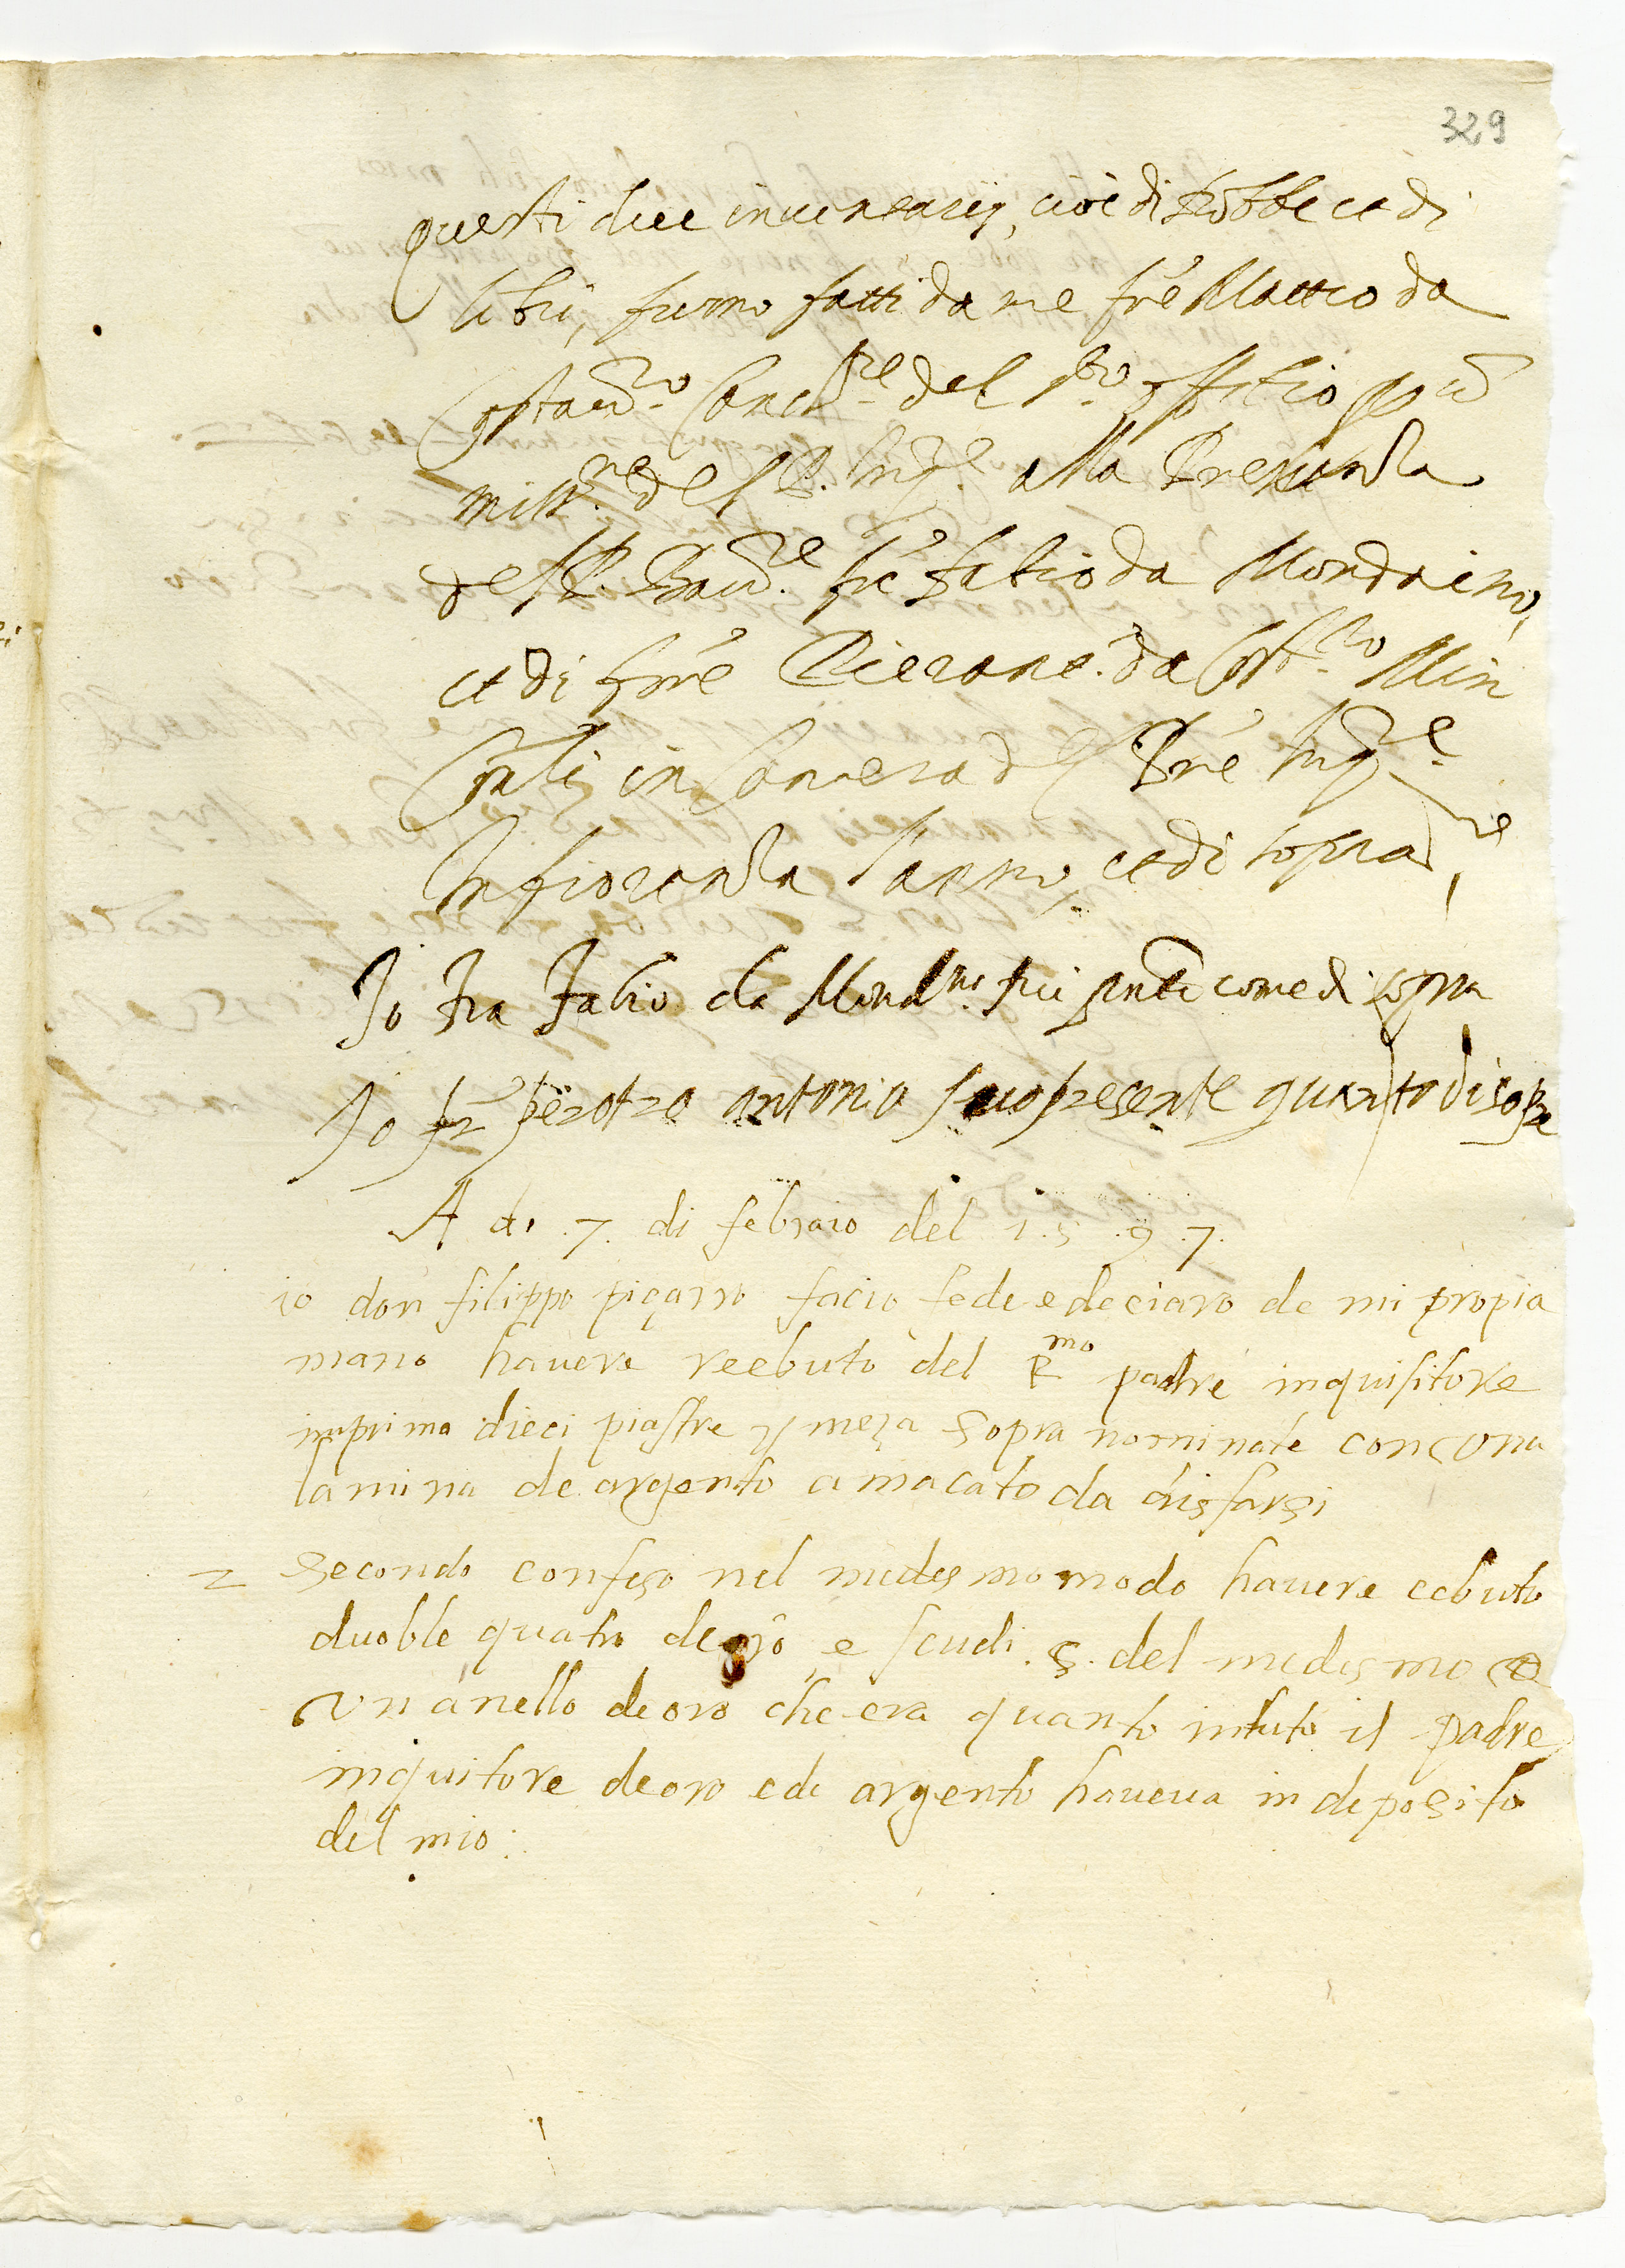 329
questi due inventarij, cioè di robbe et di
libri, furno fatti da me frê Matteo da
Canc.re del s.to offitio
miss.ne del P. Inq.re alla Presenza
del P. Bacc.re frê Fabio da Mondaino,
et di frê Pierant.o da Min
in Camera del Prê Inq.re
In fiorenza l'anno, et di sopra
Io fra Fabio da Mond.no fui pnte come di sopra
Io fr pierotro antonio fuo presente quanto di sopra
A di .7. di febraio del 1.5.9.7.
io don filippo piçarro facio fede e deciaro de mi propia
mano havere recbuto del R.mo padre inquisitore
inprimo dieci piastre y meza sopra nominate con una
lamina de argento amacato da disfarsi
2 Secondo confeso nel medesmo modo havere cebuto
duoble quatro de oro e scudi .5. del medesmo e
un anello de oro che era quanto intuto il padre
inquitore de oro e de argento haveva in deposito
del mio: